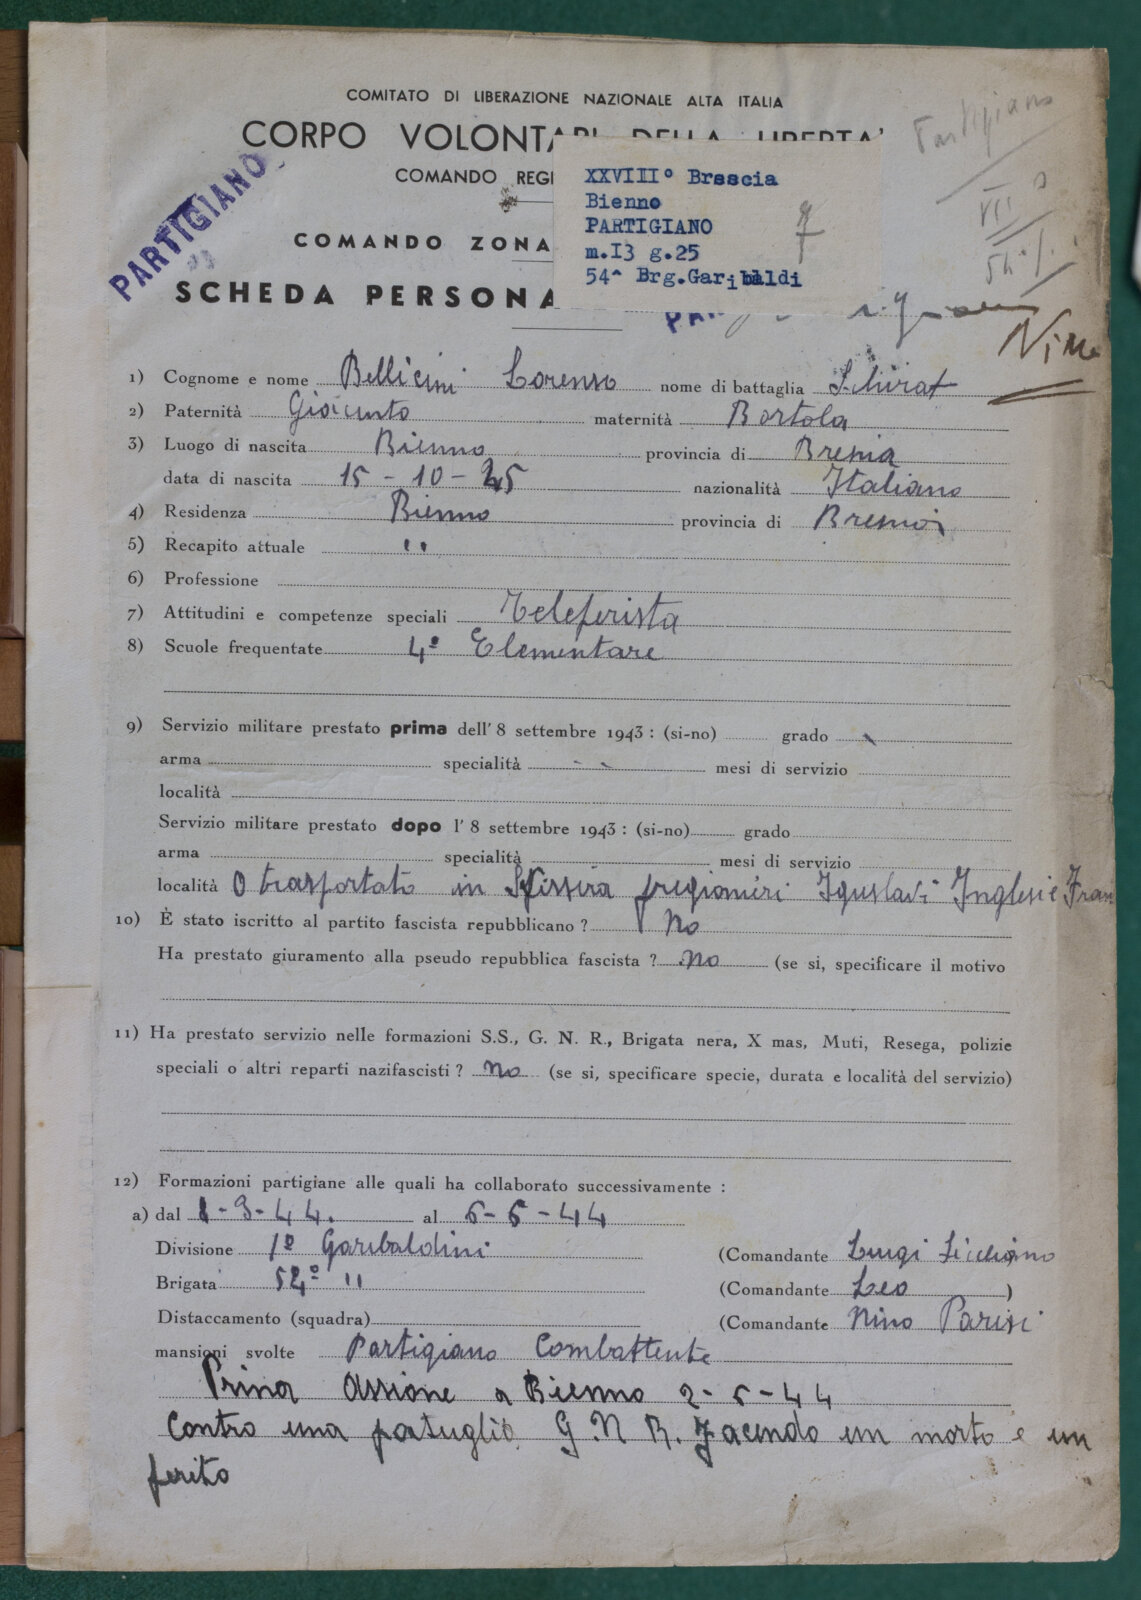 COMITATO DI LIBERAZIONE NAZIONALE ALTA ITALIA
CORPO VOLONTARI DELLA LIBERTA'
COMANDO REGI
COMANDO ZONA
SCHEDA PERSONA
PARTIGIANO
XXVIII° Brescia
Bienno
PARTIGIANO
m.I3 g.25
54^ Brg.Garibaldi
7
Partigiano
VII
1) Cognome e nome Bellicini Lorenso nome di battaglia
2) Paternità Giacinto maternità Bortola
3) Luogo di nascita Bienno provincia di Bresia
data di nascita 15 - 10 - 25 nazionalità Italiano
4) Residenza Bienno provincia di
5) Recapito attuale " 
6) Professione
7) Attitudini e competenze speciali Teleferista
8) Scuole frequentate 4ª Elementare
9) Servizio militare prestato prima dell' 8 settembre 1943 : (si-no) grado
arma specialità mesi di servizio
località
Servizio militare prestato dopo l' 8 settembre 1943 : (si-no) grado
arma specialità mesi di servizio
località O trasportato in prigionieri Iguslavi Inglesi e Fran
10) È stato iscritto al partito fascista repubblicano ? No
Ha prestato giuramento alla pseudo repubblica fascista ? No (se si, specificare il motivo
11) Ha prestato servizio nelle formazioni S.S., G. N. R., Brigata nera, X mas, Muti, Resega, polizie
speciali o altri reparti nazifascisti ? No (se si, specificare specie, durata e località del servizio)
12) Formazioni partigiane alle quali ha collaborato successivamente :
a) dal 1-3-44. al 6-6-44
Divisione 1ª Garibaldini (Comandante Luigi
Brigata 54ª " (Comandante Leo )
Distaccamento (squadra) (Comandante Nino Parisi
mansioni svolte Partigiano Combattente
Prima Assione a Bienno 2-6-44
Contro una patuglia G.N.R. facendo un morto e un
ferito